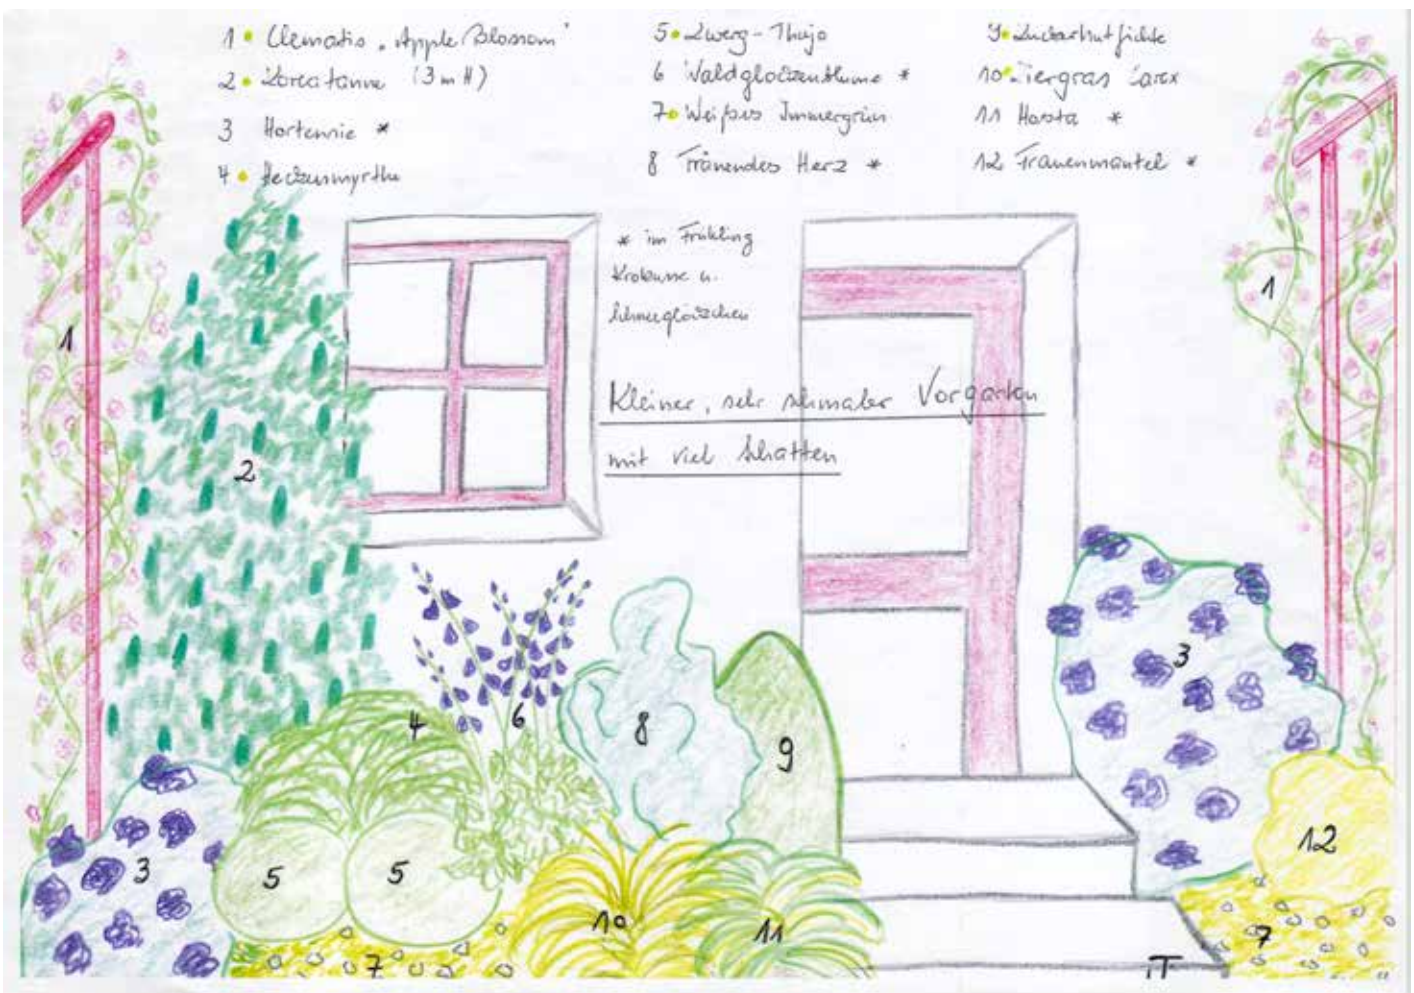 1 • Clematis „Apple Blossom"
2 • Koreatanne (3 m H)
3 Hortensie *
4 • Heckenmyrthe
5 • Zwerg-Thuja
6 Waldglockenblume *
7 • Weißes Immergrün
8 Tränendes Herz *
9 • Zuckerhutfichte
10 • Ziergras Carex
11 Hosta *
12 Frauenmantel *
* im Frühling
Krokusse u.
Schneeglöckchen
Kleiner, sehr schmaler Vorgarten
mit viel Schatten
1
1
2
3
4
6
8
9
3
5
5
3
10
11
12
7
7
JT